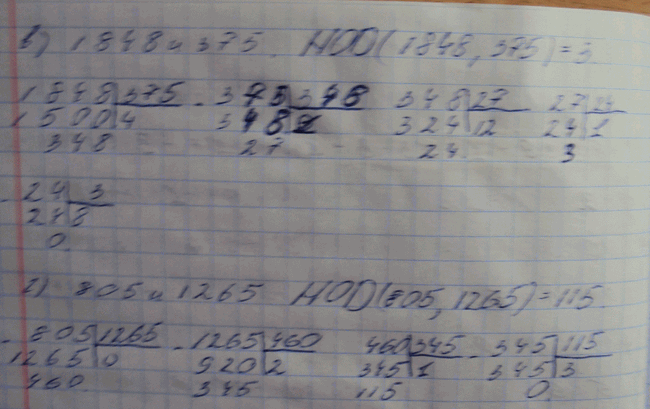 в) 1848 и 375. НОД(1848, 375)=3.
1848 375 - 375 348 348 27 27 24
1500 4 348 1 324 12 24 1
348 27 24 3
- 24 3
24 8
0
г) 805 и 1265 НОД(805, 1265)=115
- 805 1265 - 1265 460 460 345 - 345 115
1265 0 920 2 345 1 345 3
460 345 115 0